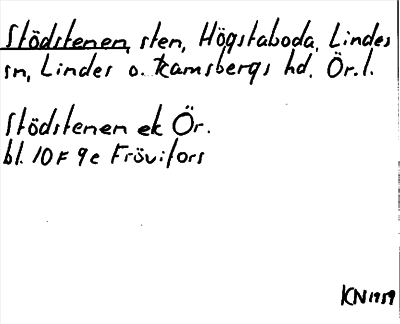 Stödstenen, sten, Högstaboda, Lindes
sn, Lindes o. Ramsbergs hd. Ör.l.
Stödstenen ek Ör.
bl. 10 F 9 e Frövifors
KN 1959